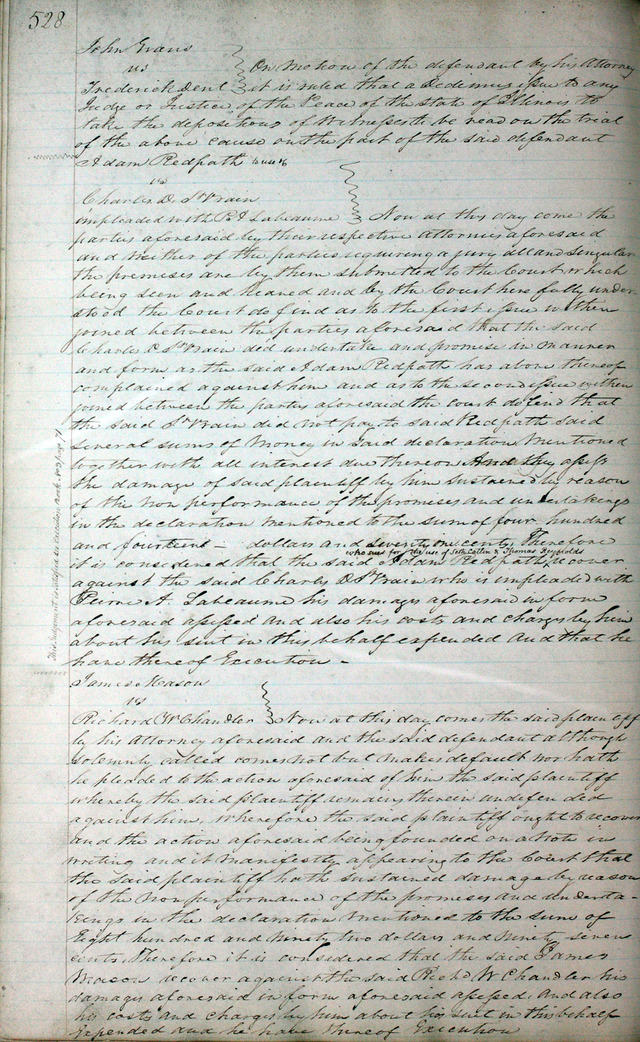 528
John Evans
vs
On motion of the defendant by his Attorney
Frederick Dent it is ruled that a Dedimus issue to any
Judge or Justice of the Peace of the State of Illinois to
take the depositions of Witnesses to be read on the trial
of the above cause on the part of the said defendant
Adam Redpath
vs
Charles D. St Vrain
impleaded with P. A Labeaume Now at this day come the
parties aforesaid by their respective Attornies aforesaid
and neither of the parties requiring a jury all and singular
the premises are by them submitted to the Court which
being seen and heared and by the Court here fully under
stood the Court do find as to the first issue within
joined between the parties aforesaid that the said
Charles D St Vrain did undertake and promise in manner
and form as the said Adam Redpath has above thereof
complained against him and as to the second issue within
joined between the parties aforesaid the court do find that
the said St Vrain did not pay to said Redpath said
several sums of Money in said declaration mentioned
together with all interest due thereon And they assess
the damage of said plaintiff by him sustained by reason
of the non performance of the promises and undertakings
in the declaration mentioned to the sum of four hundred
and fourteen - dollars and seventy one cents, Therefore
who sues for the use of Seth Catlin & Thomas Reynolds
it is considered that the said Adam Redpath recover
against the said Charles D St Vrain who is impleaded with
A. Labeaume his damages aforesaid in form
aforesaid assessed and also his costs and charges by him
about his suit in this behalf expended And that he
have thereof Execution -
This Judgment
James Mason
vs
Richard W Chandler Now at this day comes the said plaintiff
by his Attorney aforesaid and the said defendant although
solemnly called comes not but makes default nor hath
he pleaded to the action aforesaid of him the said plaintiff
whereby the said plaintiff remains therein undefended
against him, Wherefore the said plaintiff ought to recover
and the action aforesaid being founded on a Note in
writing and it manifestly appearing to the Court that
the said plaintiff hath sustained damage by reason
of the non performance of the promises and underta-
kings in the declaration mentioned to the sum of
Eight hundred and Ninety two dollars and Ninety seven
cents, Therefore it is considered that the said James
Mason recover against the said Richd W Chandler his
damages aforesaid in form aforesaid assessed, And also
his costs and charges by him about his suit in this behalf
expended and he have thereof Execution